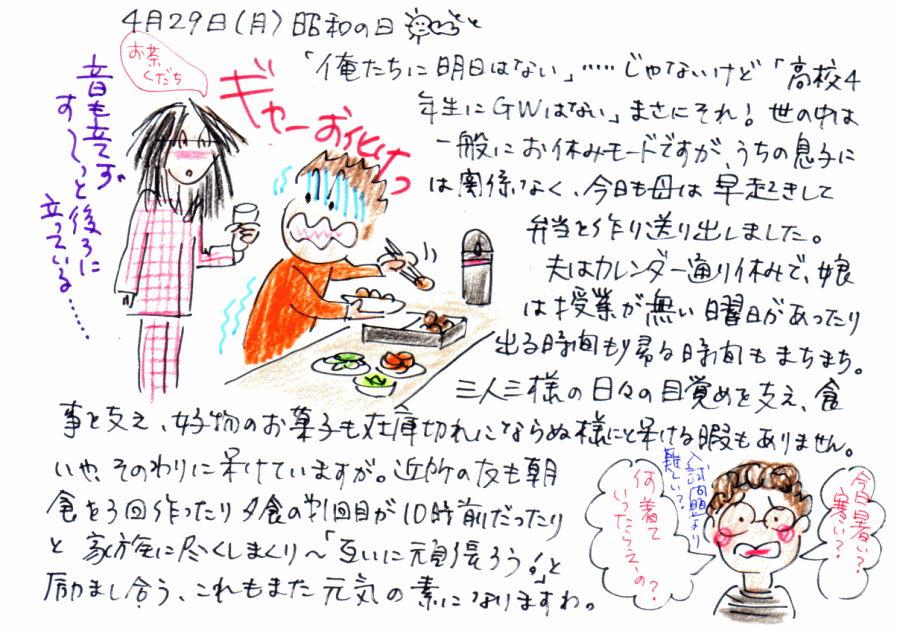 4月29日(月) 昭和の日
お茶
くだち
ギャーお化けっ
音も立てず
すーっと後ろに
立っている……
「俺たちに明日はない」……じゃないけど「高校4
年生にGWはない」まさにそれ！世の中は
一般にお休みモードですが、うちの息子に
は関係なく、今日も母は早起きして
弁当を作り送り出しました。
夫はカレンダー通り休みで、娘
は授業が無い曜日があったり
出る時間も帰る時間もまちまち。
三人三様の日々の目覚めを支え、食
事を支え、好物のお菓子も在庫切れにならぬ様にと呆ける暇もありません。
いや、そのわりに呆けていますが。近所の友も朝
食を3回作ったり夕食の1回目が10時前だったり
と家族に尽くしまくり〜「互いに頑張ろう！」と
励まし合う、これもまた元気の素になりますわ。
入試問題より
難しい？
何着て
いったらええの？
今日暑い？
寒い？